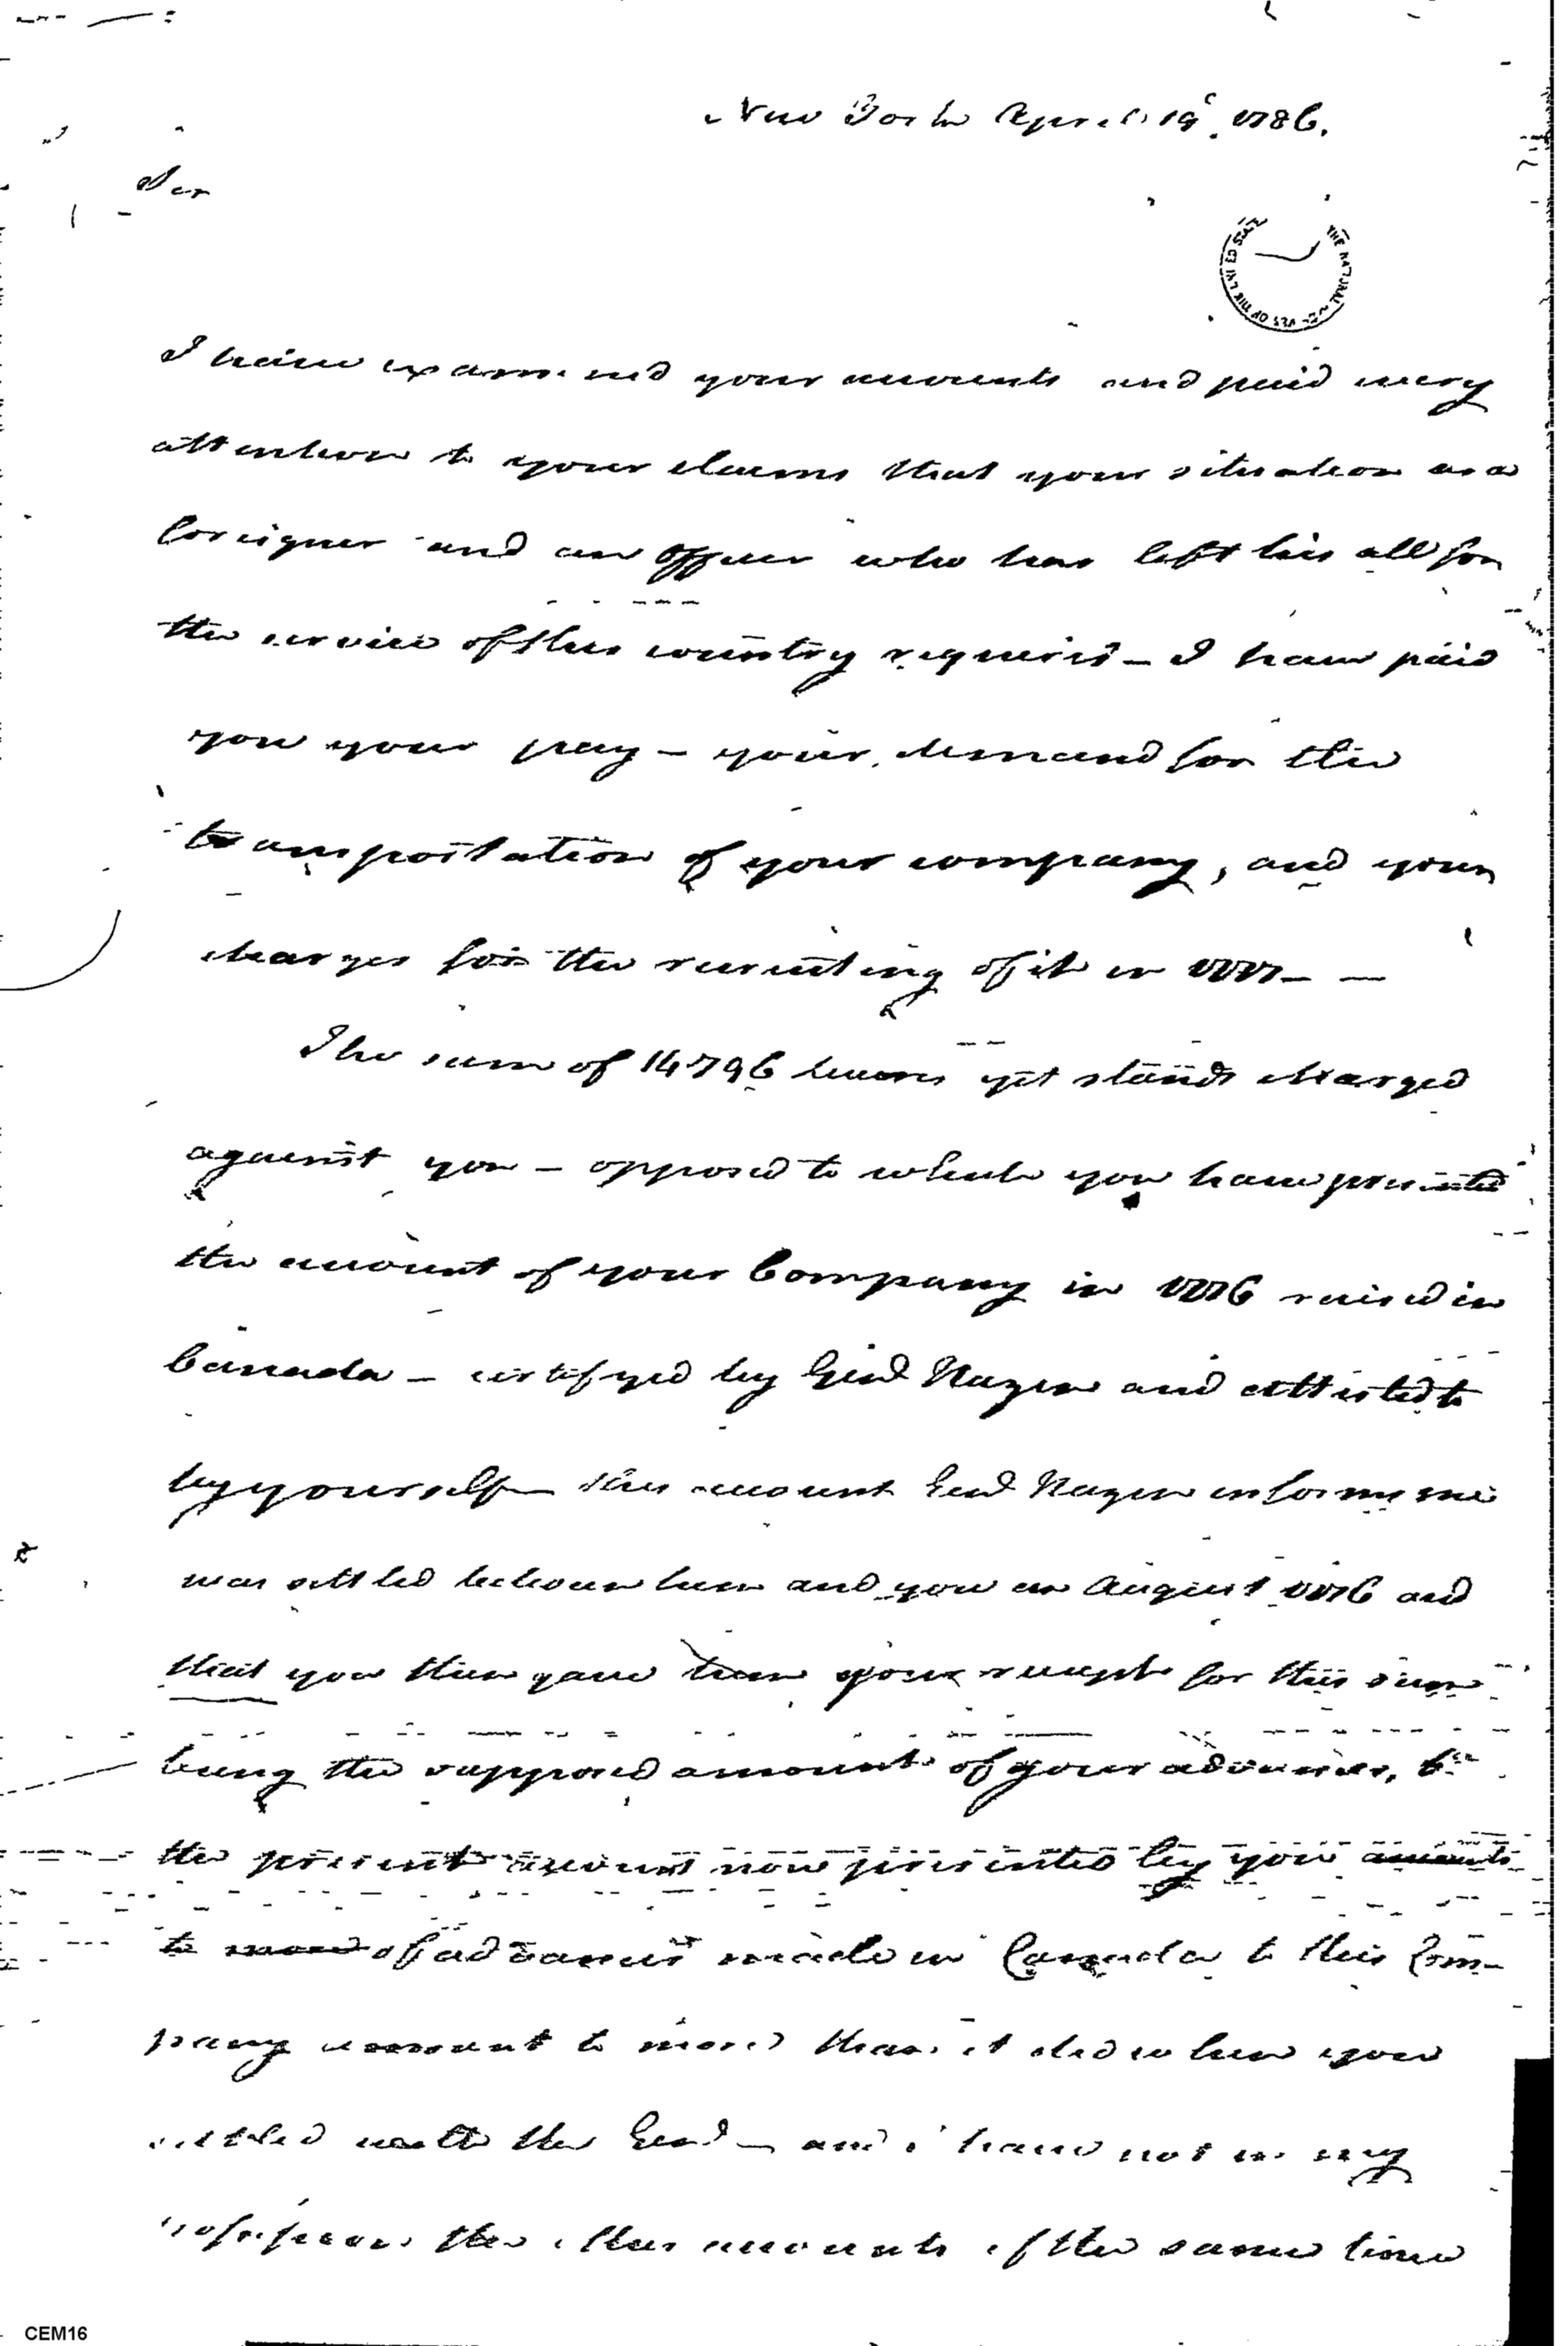 New York April 19. 1786.
Sir
THE NATIONAL ARCHIVES OF THE UNITED STATES
I have examined your accounts and paid every
attention to your claims that your situation as a
foreigner and an officer who has left his all for
the service of this country requires — I have paid
you your pay — your demand for the
transportation of your company, and your
charges for the recruiting of it in 1777 — —
The sum of 14796 livres yet stands charged
against you — opposed to which you have presented
the account of your Company in 1776 raised in
Canada — certifyed by Genl Hazen and attested to
by yourself — this account Genl Hazen informs me
was settled between him and you in August 1776 and
that you then gave him your receipt for this sum
being the supposed amount of your advances,
the present account now presented by you amounts
to more of advances made in Canada to this Com-
pany amount to more than it did when you
settled with the Genl — and i have not in my
possession the other accounts of the same time
CEM16